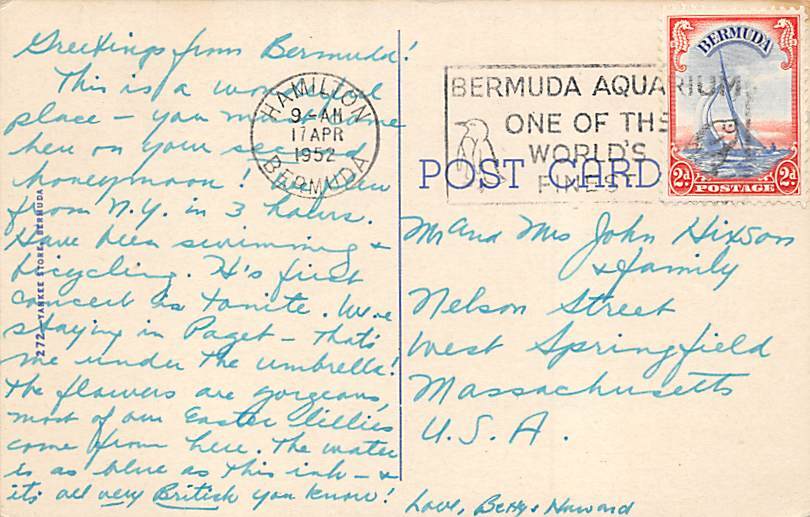 Greetings from Bermuda!
This is a wonderful
place - you must come
here on your second
honeymoon! Flew
from N.Y. in 3 hours.
Have been swimming &
bicycling. H's first
concert is tonite. We're
staying in Paget - that's
me under the umbrella!
The flowers are gorgeous,
most of our Easter lillies
come from here. The water
is as blue as this ink - &
it's all very British you know!
272 - YANKEE STORE, BERMUDA
HAMILTON
9 - AM
17 APR
1952
BERMUDA
BERMUDA AQUARIUM
ONE OF THE
WORLD'S
FINEST
BERMUDA
2d POSTAGE 2d
POST CARD
Mr and Mrs John Hixson
& family
Nelson Street
West Springfield
Massachusetts
U.S.A.
Love, Betty & Howard